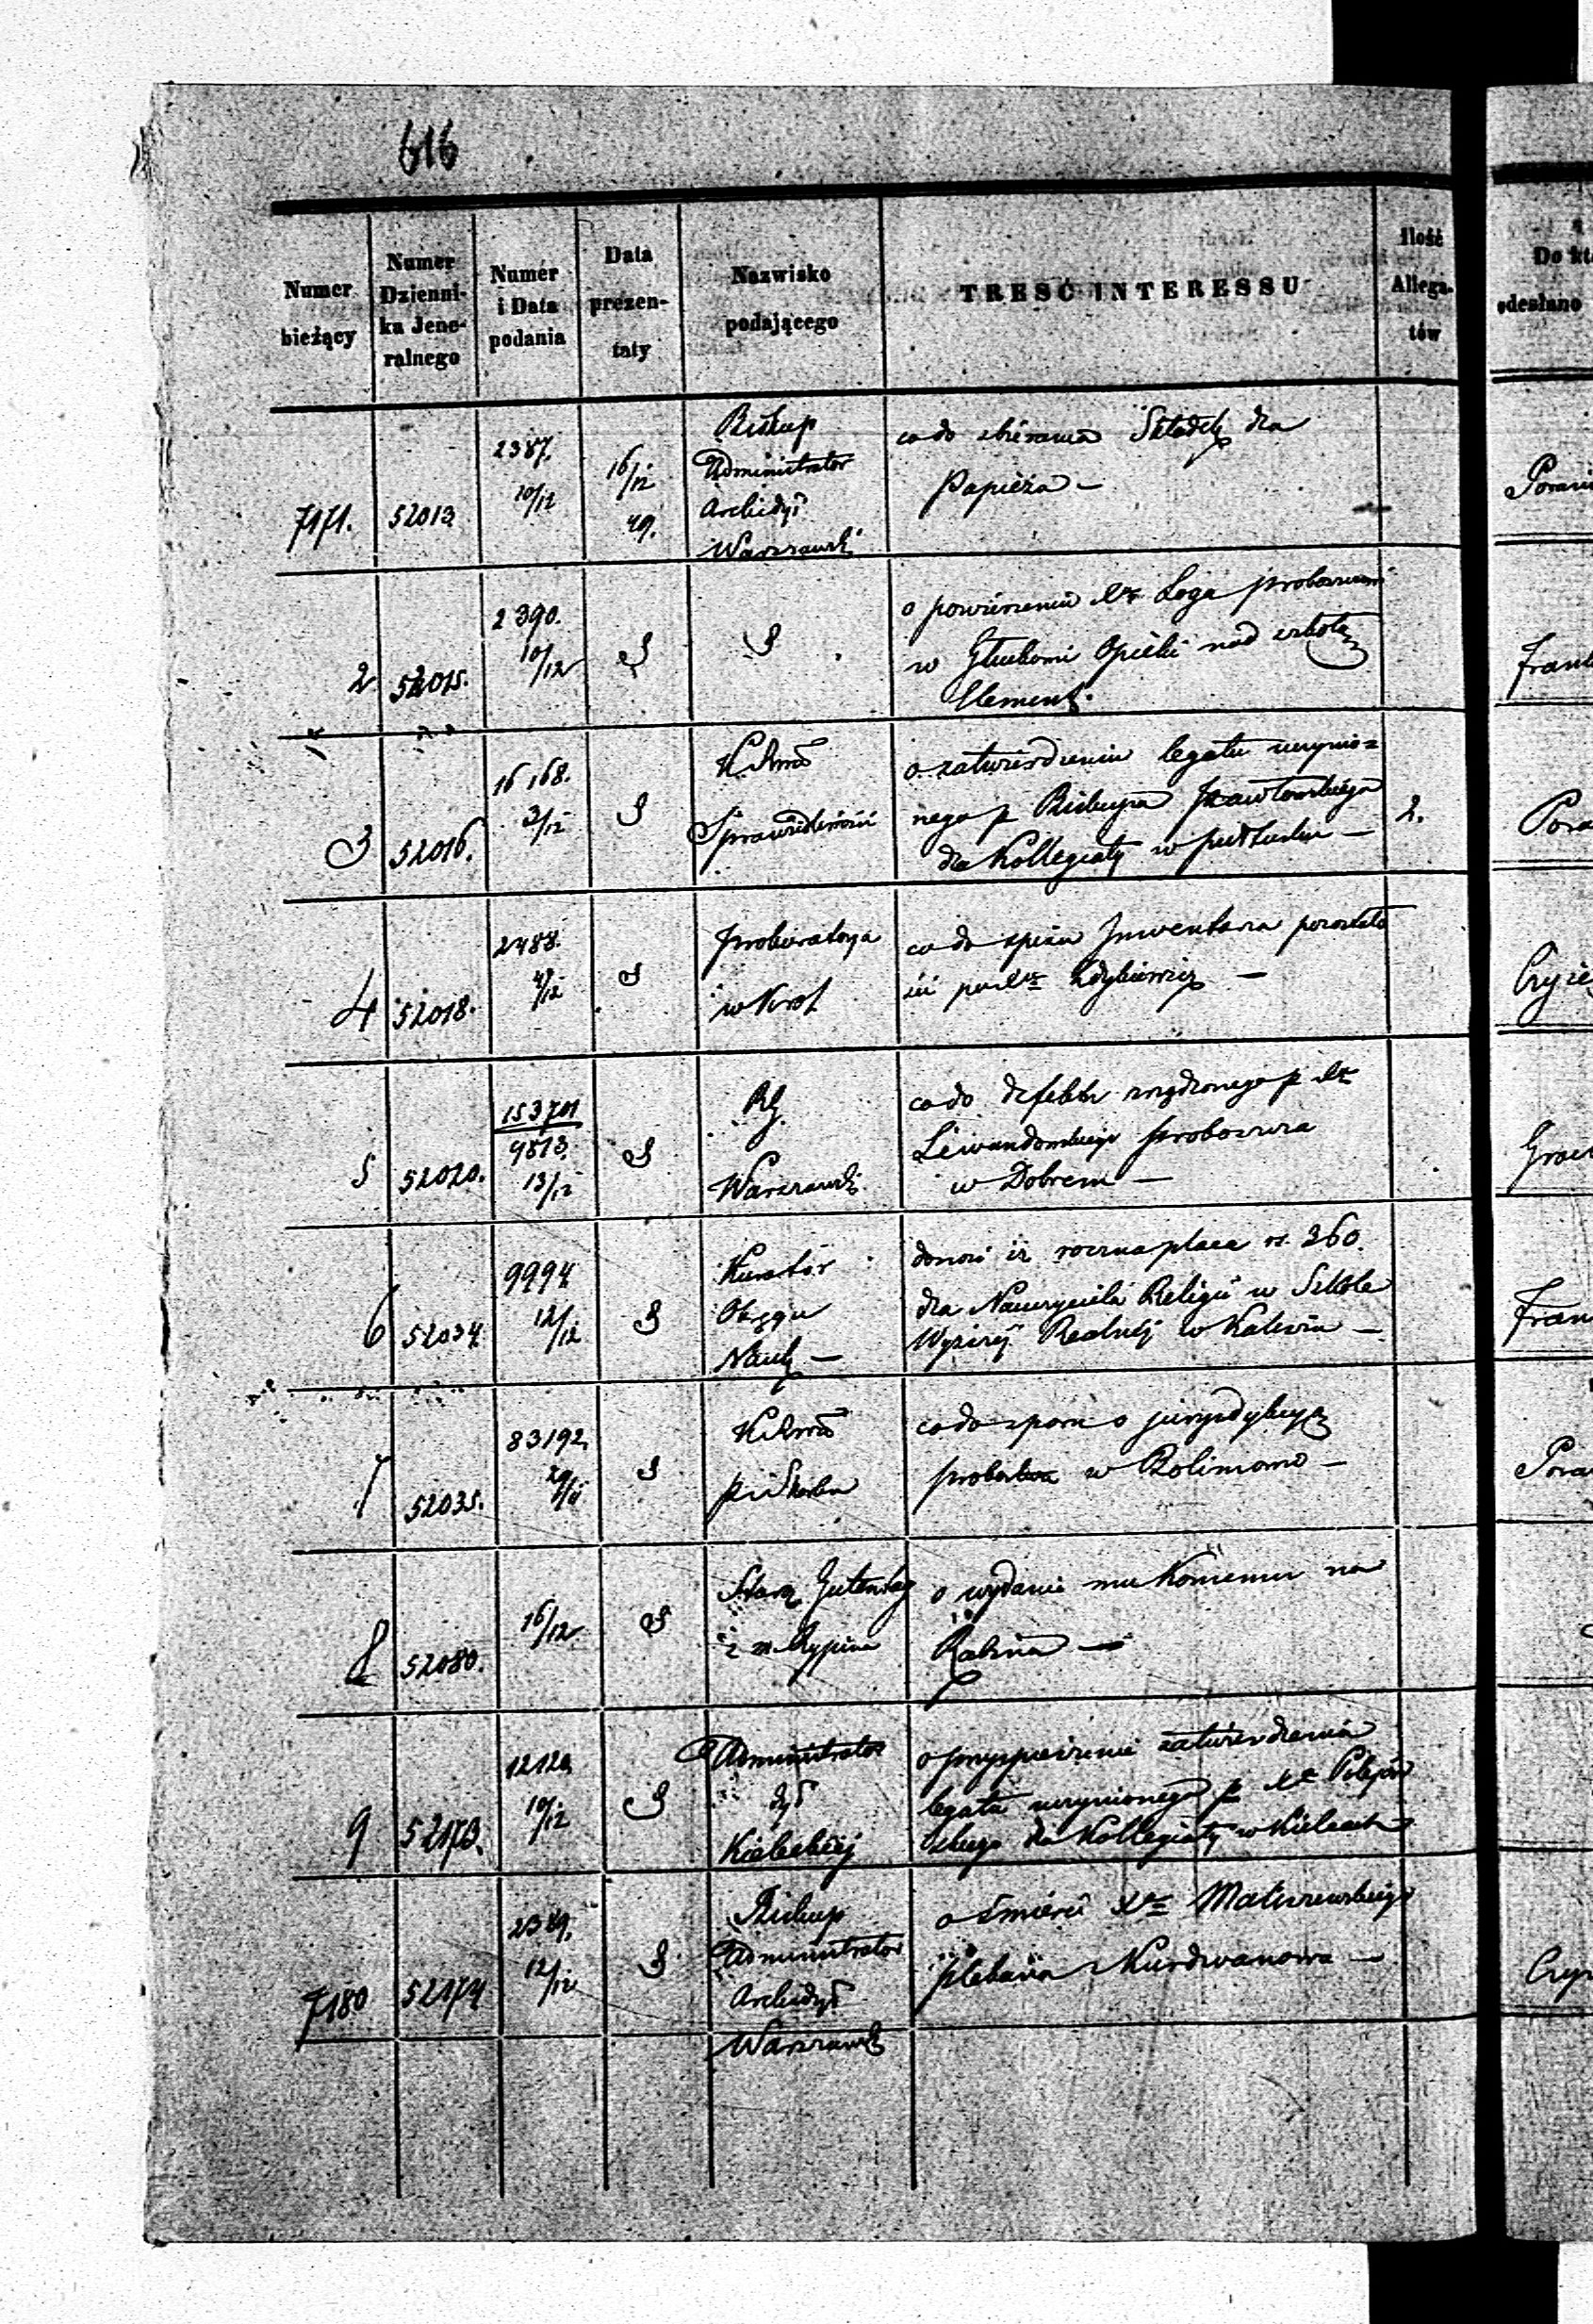 616
Numer bieżący
Numer Dziennika Jeneralnego
Numer i Data podania
Data prezentaty
Nazwisko podającego
TREŚĆ INTERESSU
Ilość Allegatów
Do
odesłano
7171. 52013 2387. 10/12 16/12 49.
Biskup
Administrator
Archidyś
Warszawski
co do zbierania Składek dla
Papieża —
2 52015. 2390. 10/12
o powierzeniu Xr Loga proboszczowi
w Opieki nad szkołą
Element.
3 52016. 16168. 3/12
Sprawiedliwości
o zatwierdzeniu legatu uczynio=
nego p Biskupa Pawłowskiego
dla Kollegiaty w Pułtusku —
2.
4 52018. 2488. 4/12
Prokuratorya
w Król
co do spisu Inwentarza pozostało
ści po Xr —
5 52020. 153701 9813. 13/12
RG.
Warszawski
co do defektu zrządzonego p Xr
Lewandowskiego proboszcza
w Dobrem —
6 52034. 9994 12/12
Kurator
Okręgu
Nauk —
donosi iż roczna płaca rs. 360.
dla Nauczyciela Religii w Szkole
Wyższej Realnej w Kaliszu —
7 52035. 83192. 29/11
co do sporu o jurysdykcyą
probostwa w Bolimowie —
8 52080. 16/12
z m. Rypina
o wydanie mu Konsensu na
Rabina —
9 52173. 1212. 10/12
Administrator
dyś
Kieleckiej
o przyspieszenie zatwierdzenia
legatu uczynionego p Xa
dla Kollegiaty w Kielcach
7180 52174 2389. 12/12
Biskup
Administrator
Archidyś
Warszawsk
o śmierci Xa Matuszewskiego
plebana Kurdwanowa —